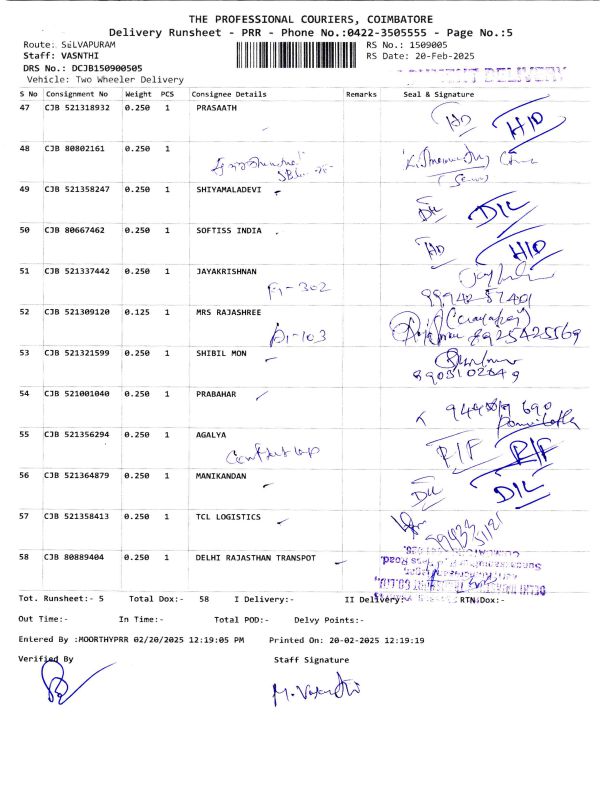 THE PROFESSIONAL COURIERS, COIMBATORE
Delivery Runsheet - PRR - Phone No.:0422-3505555 - Page No.:5
Route: SELVAPURAM RS No.: 1509005
Staff: VASNTHI RS Date: 20-Feb-2025
DRS No.: DCJB150900505
Vehicle: Two Wheeler Delivery
S No Consignment No Weight PCS Consignee Details Remarks Seal & Signature
47 CJB 521318932 0.250 1 PRASAATH
HD H/D
48 CJB 80802161 0.250 1
49 CJB 521358247 0.250 1 SHIYAMALADEVI
D/L D/L
50 CJB 80667462 0.250 1 SOFTISS INDIA
HD H/D
51 CJB 521337442 0.250 1 JAYAKRISHNAN
52 CJB 521309120 0.125 1 MRS RAJASHREE
8925425569
53 CJB 521321599 0.250 1 SHIBIL MON
54 CJB 521001040 0.250 1 PRABAHAR
55 CJB 521356294 0.250 1 AGALYA
R/F R/F
56 CJB 521364879 0.250 1 MANIKANDAN
D/L D/L
57 CJB 521358413 0.250 1 TCL LOGISTICS
58 CJB 80889404 0.250 1 DELHI RAJASTHAN TRANSPOT
Tot. Runsheet:- 5 Total Dox:- 58 I Delivery:- II Delivery:- RTN Dox:-
Out Time:- In Time:- Total POD:- Delvy Points:-
Entered By :MOORTHYPRR 02/20/2025 12:19:05 PM Printed On: 20-02-2025 12:19:19
Verified By Staff Signature